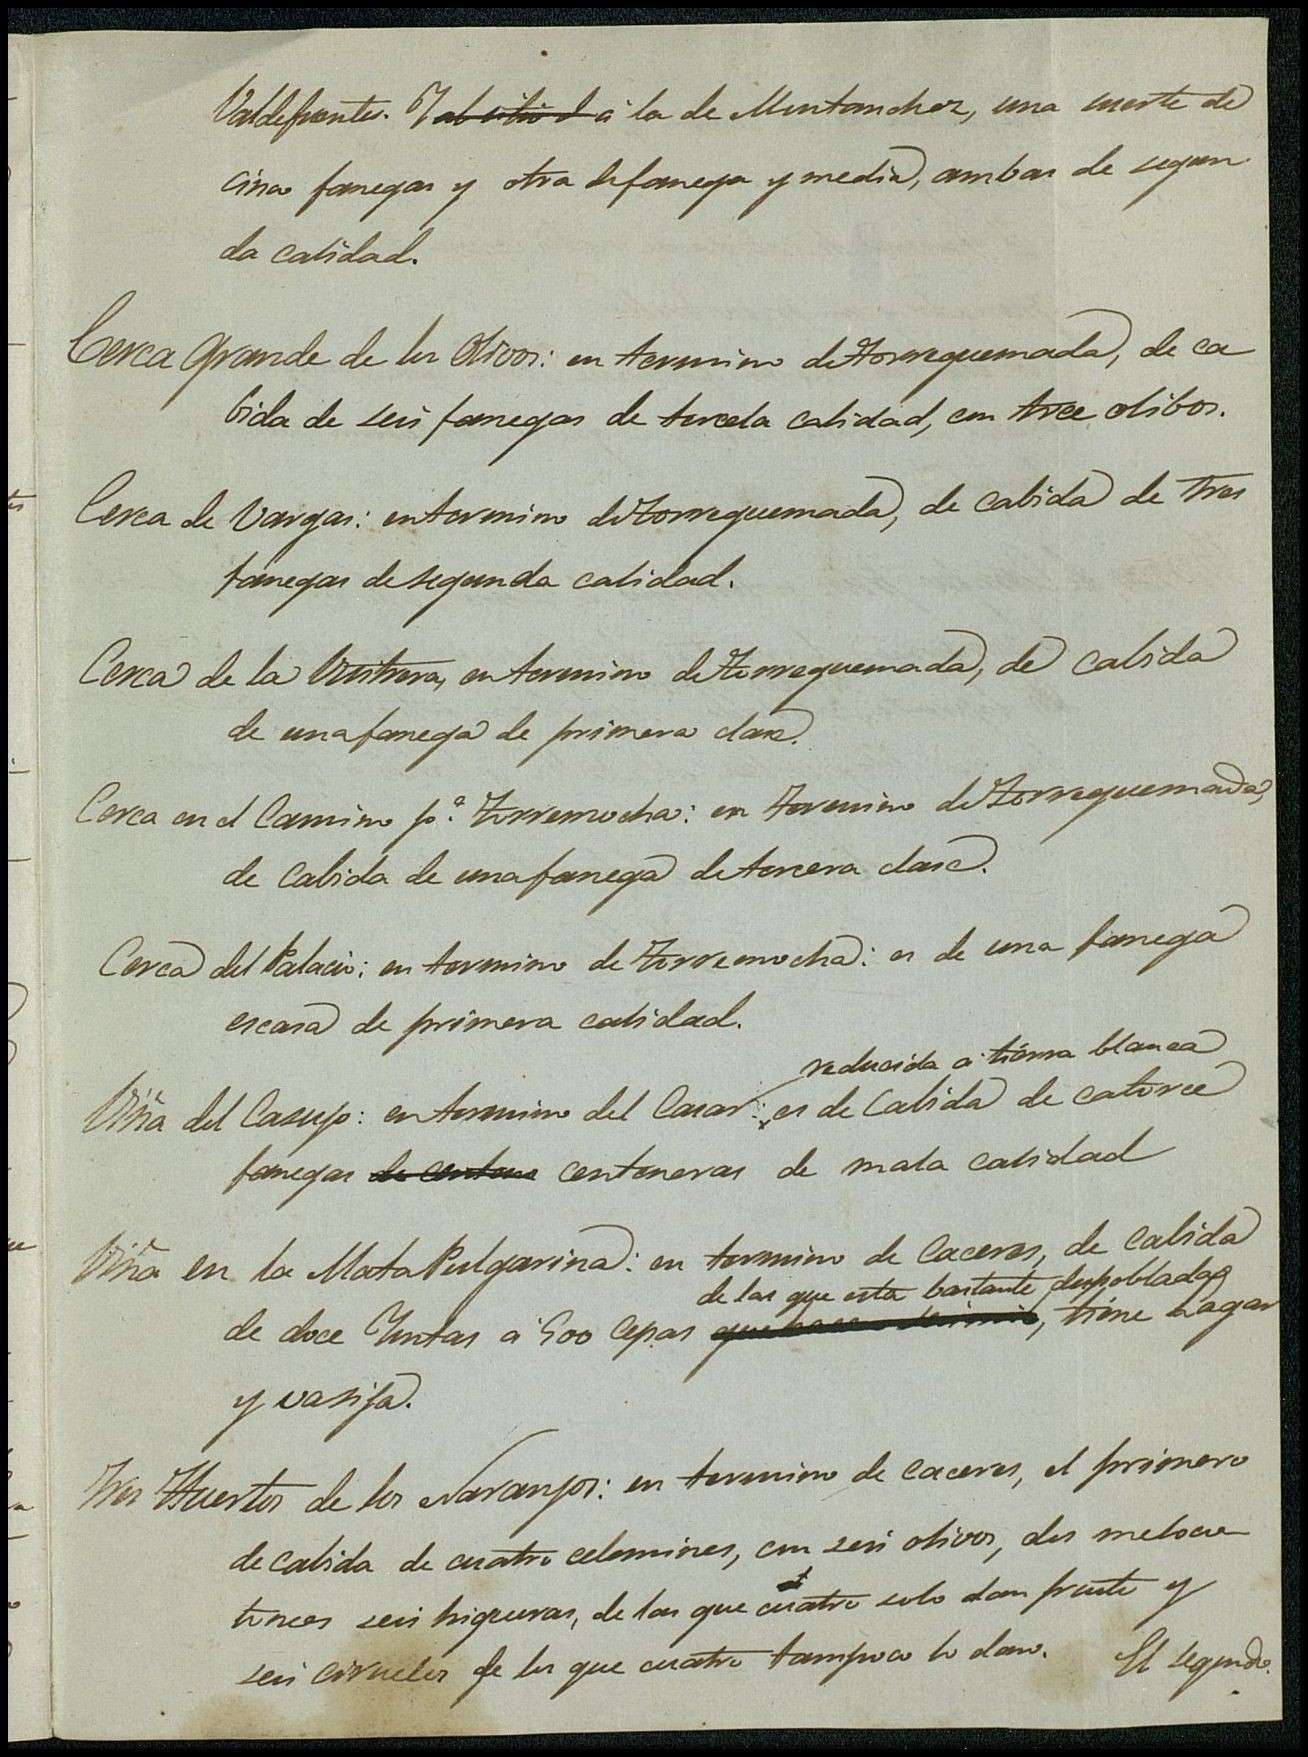 Valdefuentes. Y al sitio d á la de Montanchez, una suerte de
cinco fanegas y otra de fanega y media, ambas de segun
da calidad.
Cerca grande de los Olivos: en termino de Torrequemada, de ca
bida de seis fanegas de tercela calidad, con trece olibos.
Cerca de Vargas: en termino de Torrequemada, de cabida de tres
fanegas de segunda calidad.
Cerca de la en termino de Torrequemada, de cabida
de una fanega de primera clase.
Cerca en el Camino pª. Torremocha: en termino de Torrequemada,
de cabida de una fanega de tercera clase.
Cerca del Palacio: en termino de Torremocha: es de una fanega
escasa de primera calidad.
reducida á tierra blanca
Viña del Casujo: en termino del Casar: es de Cabida de catorce
fanegas de centeno centeneras de mala calidad
Viña en la Mata Pulgarina: en termino de Caceres, de cabida
de las que esta bastante despoblada
de doce Yuntas á 500 Cepas que, tiene Lagar
y vasija.
Tres Huertos de los Naranjos: en termino de Caceres, el primero
de cabida de cuatro celemines, con seis olivos, dos meloco
tones seis higueras, de las que cuatro solo dan fruto y
seis ciruelos de los que cuatro tampoco lo dan. El segundo.